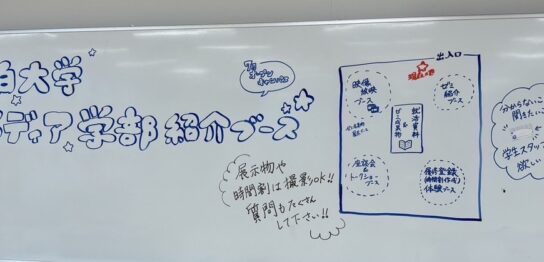 白大学
ディア学部 紹介ブース
オープン
キャンパス
展示物や
時間割は撮影OK!!
質問もたくさん
して下さい!!
出入口
現在地
映像
放映
ブース
ゼミ
紹介
ブース
就活資料
&
ゼミの成果物
座談会
&
トークショー
ブース
履修登録
(時間割作成)
体験ブース
分からないこ
聞きたいこ
学生スタッフ
欲しい